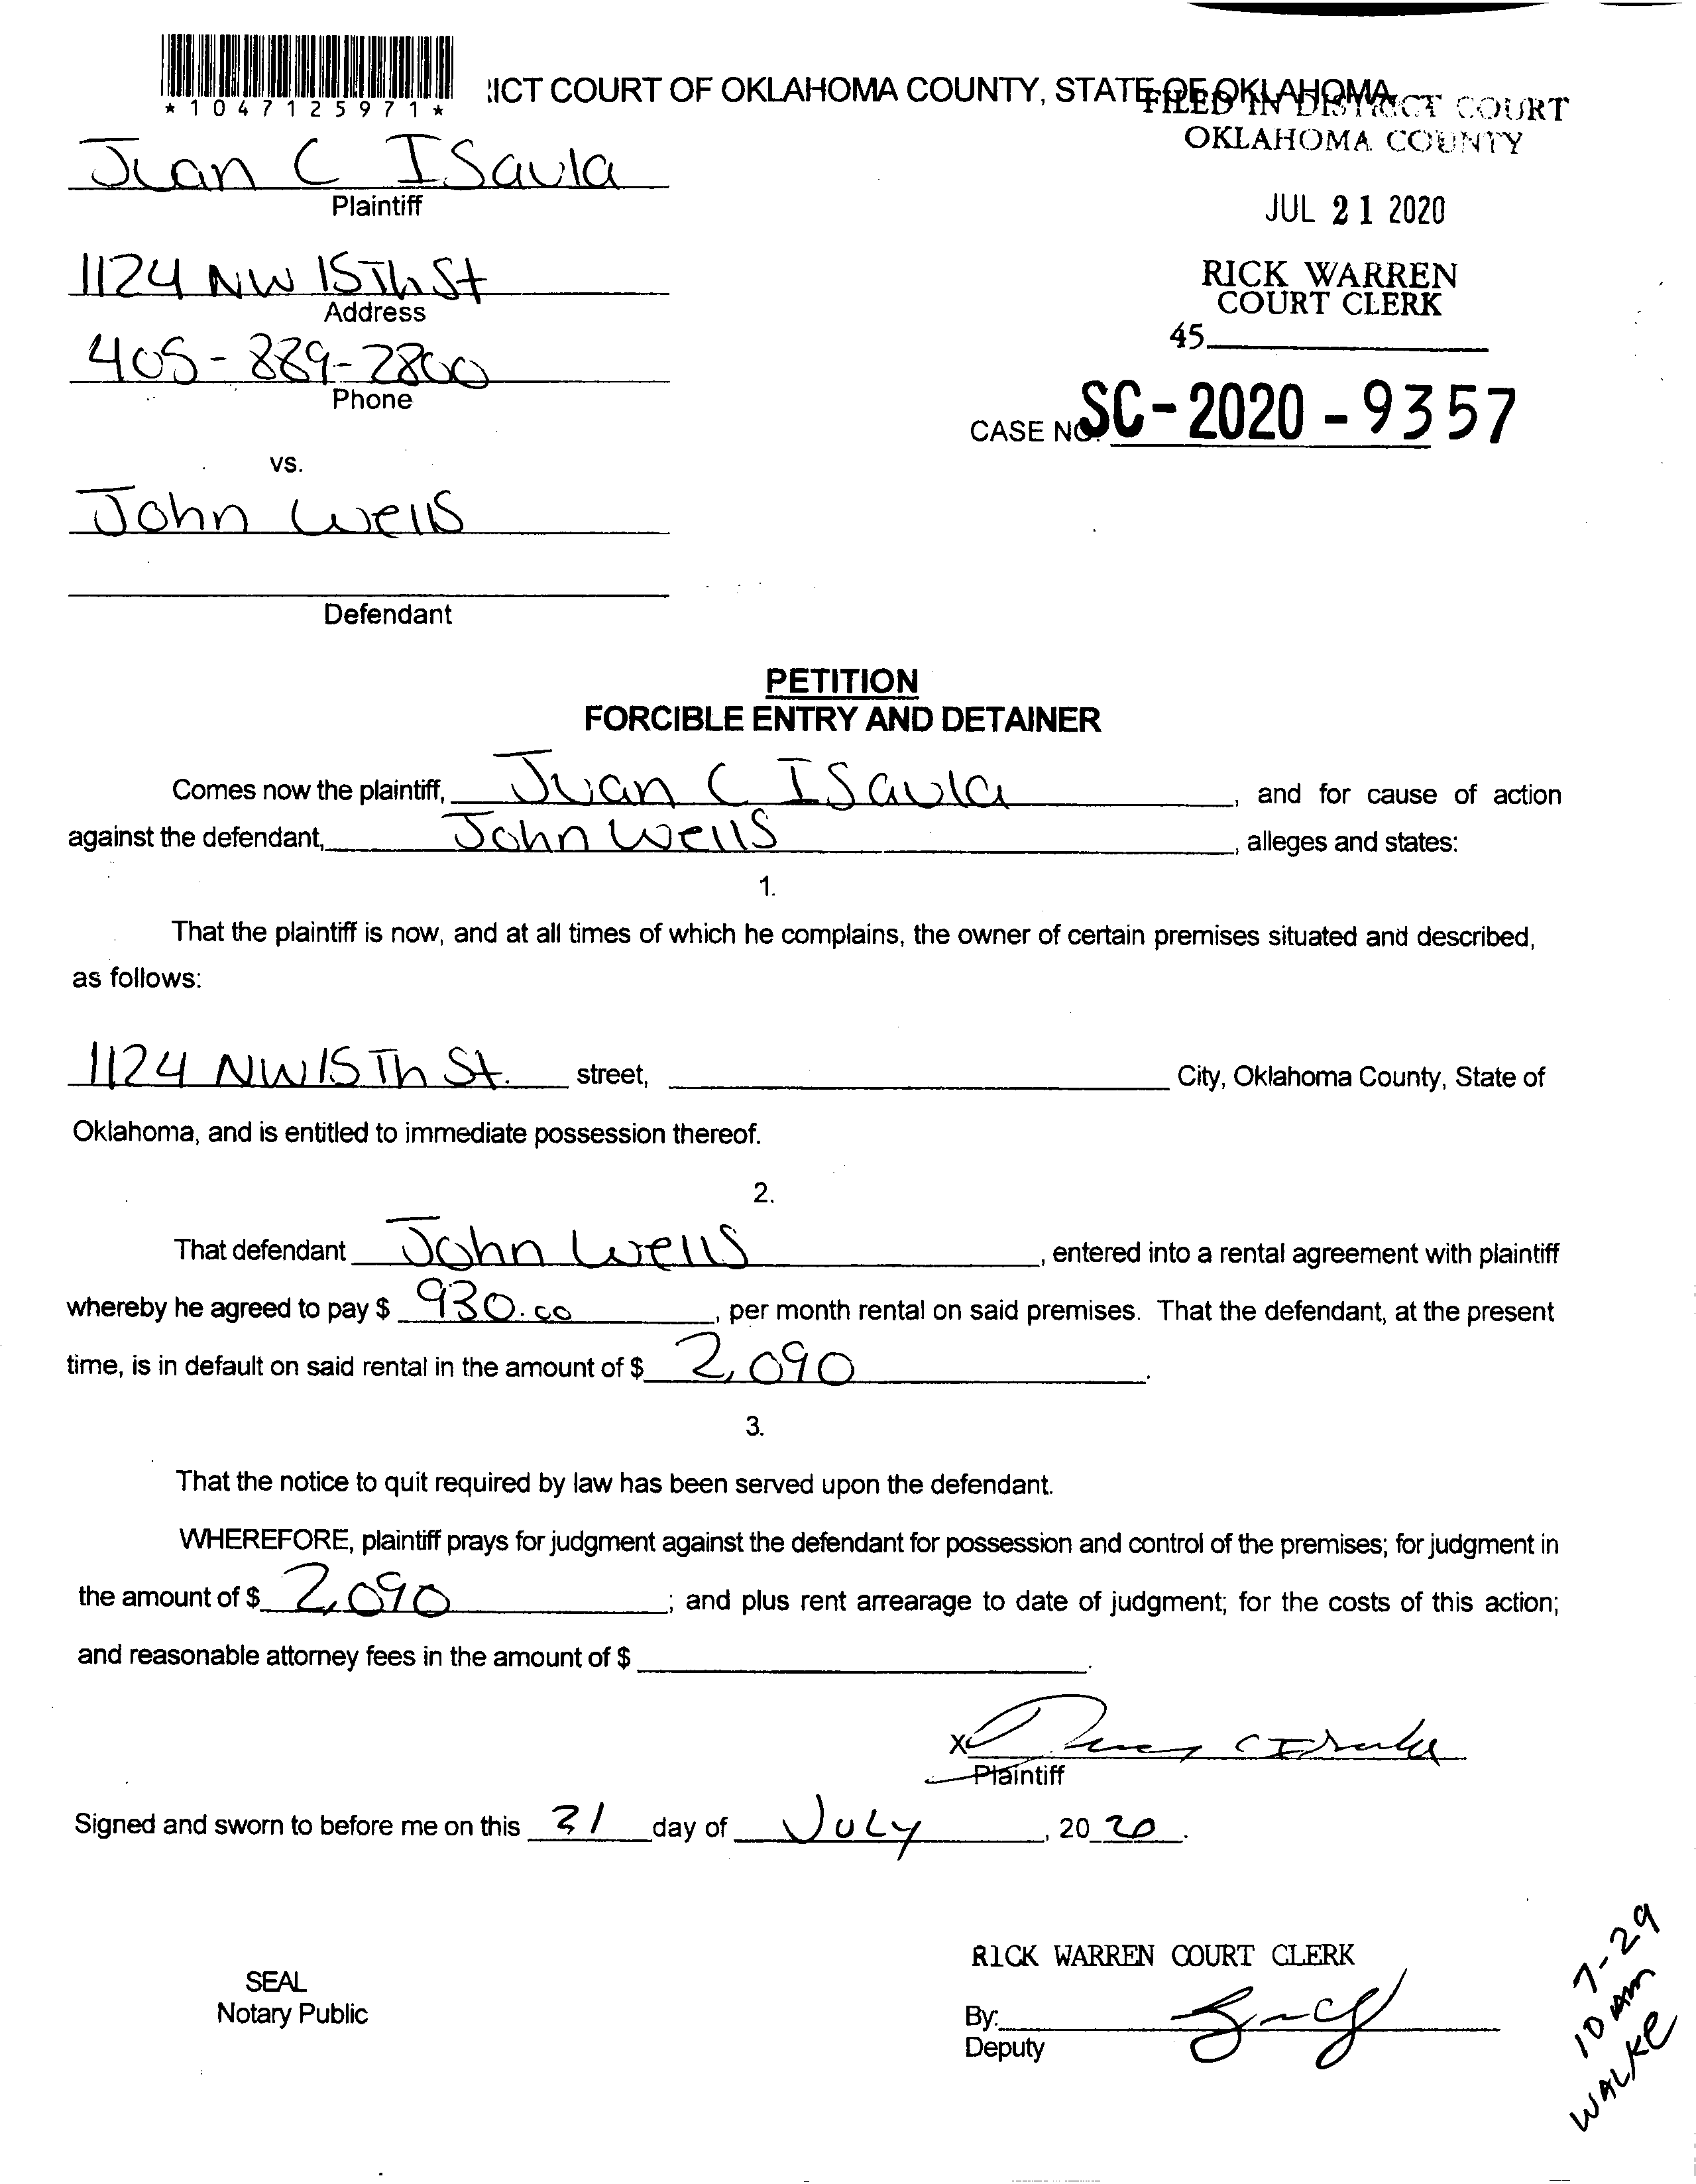 *1047125971*
ICT COURT OF OKLAHOMA COUNTY, STATE OF OKLAHOMA
FILED IN DISTRICT COURT
OKLAHOMA COUNTY
JUL 21 2020
RICK WARREN
COURT CLERK
45
CASE NO. SC-2020-9357
Juan C ISaula
Plaintiff
1124 NW 15Th St
Address
405-889-2800
Phone
vs.
John Wells
Defendant
PETITION
FORCIBLE ENTRY AND DETAINER
Comes now the plaintiff, Juan C ISaula, and for cause of action
against the defendant, John Wells, alleges and states:
1.
That the plaintiff is now, and at all times of which he complains, the owner of certain premises situated and described,
as follows:
1124 NW 15Th St. street, City, Oklahoma County, State of
Oklahoma, and is entitled to immediate possession thereof.
2.
That defendant John Wells, entered into a rental agreement with plaintiff
whereby he agreed to pay $ 930.00, per month rental on said premises. That the defendant, at the present
time, is in default on said rental in the amount of $ 2,090.
3.
That the notice to quit required by law has been served upon the defendant.
WHEREFORE, plaintiff prays for judgment against the defendant for possession and control of the premises; for judgment in
the amount of $ 2,090; and plus rent arrearage to date of judgment; for the costs of this action;
and reasonable attorney fees in the amount of $ .
X
Plaintiff
Signed and sworn to before me on this 21 day of July, 20 20.
RICK WARREN COURT CLERK
SEAL
Notary Public
By:
Deputy
7-29
10 AM
WALKE